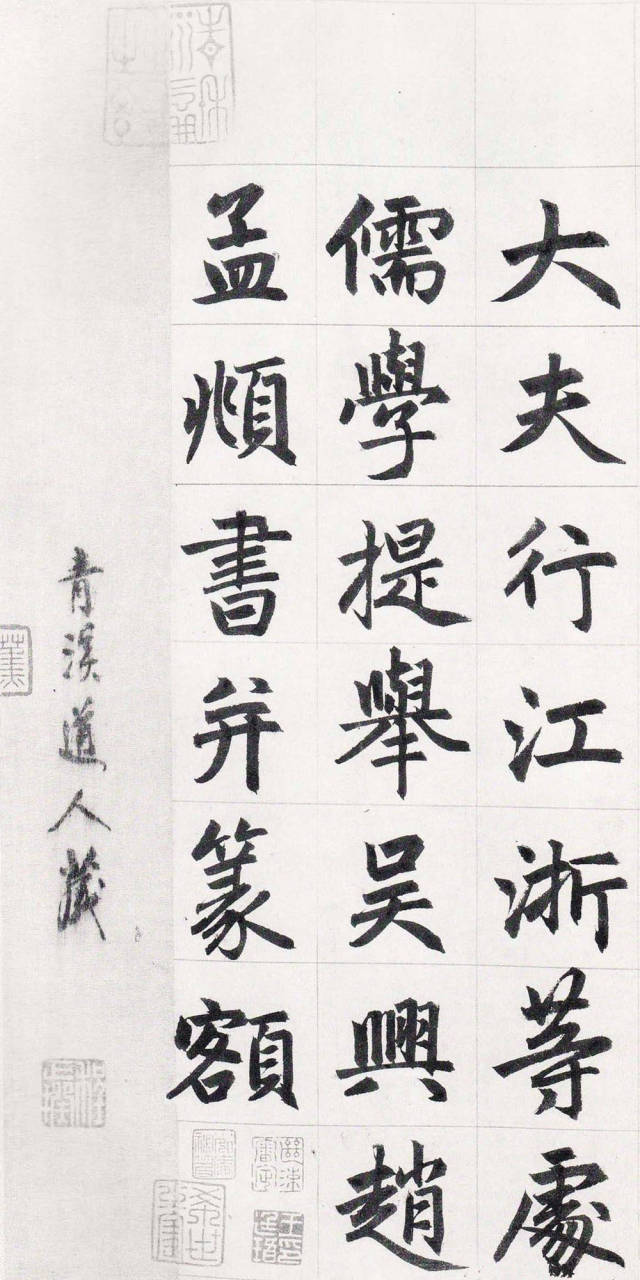 大夫行江浙等處
儒學提舉吴興趙
孟頫書并篆額
青溪道人藏